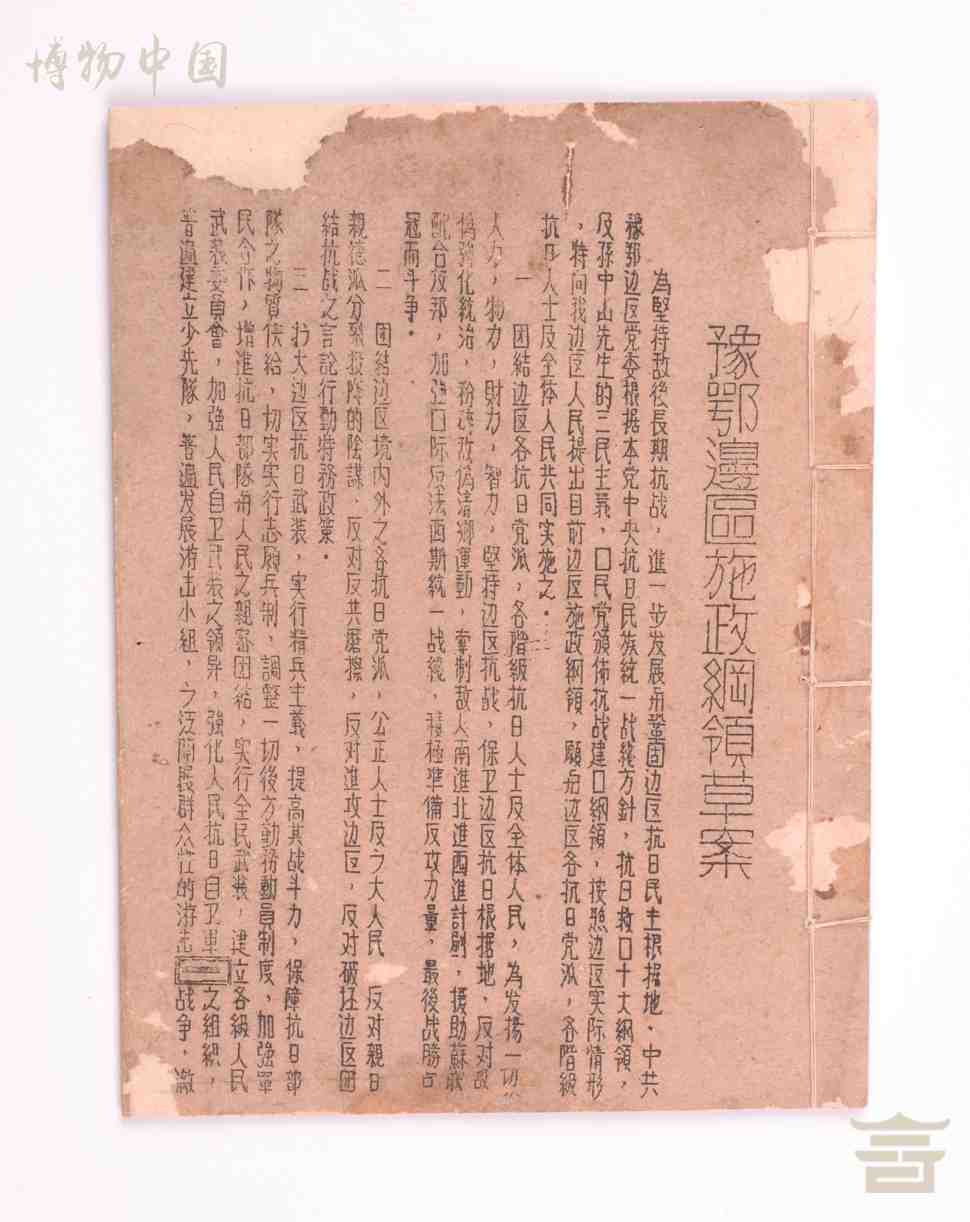 博物中国
豫鄂邊區施政綱領草案
為堅持敌後長期抗战，進一步发展与鞏固边区抗日民主根据地、中共
豫鄂边区党委根据本党中央抗日民族統一战綫方針，抗日救口十大綱領，
及孫中山先生的三民主義，口民党頒佈抗战建口綱領，按照边区实际情形
，特向我边区人民提出目前边区施政綱領，願与边区各抗日党派，各階級
抗日人士及全体人民共同实施之．
一　团結边区各抗日党派，各階級抗日人士及全体人民，為发揚一切
人力，物力，財力，智力，堅持边区抗战，保卫边区抗日根据地，反对敌
偽強化統治，粉碎敌偽清鄉運動，牽制敌人南進北進西進計劃，援助蘇联
配合友邦，加強口际反法西斯統一战綫，積極準備反攻力量，最後战勝
冠而斗争．
二　团結边区境内外之各抗日党派，公正人士及广大人民　反对親日
親德派分裂投降的陰謀．反对反共磨擦，反对進攻边区，反对破坯边区团
結抗战之言論行動特務政策．
三　扩大边区抗日武装，实行精兵主義，提高其战斗力，保障抗日部
隊之物質供給，切实实行志願兵制、調整一切後方勤務動員制度，加強軍
民合作，增進抗日部隊与人民之親密团結，实行全民武装，建立各級人民
武装委員會，加強人民自卫武装之領导，強化人民抗日自卫軍之組織，
普遍建立少先隊，普遍发展游击小組，广泛開展群众性的游击战争，激